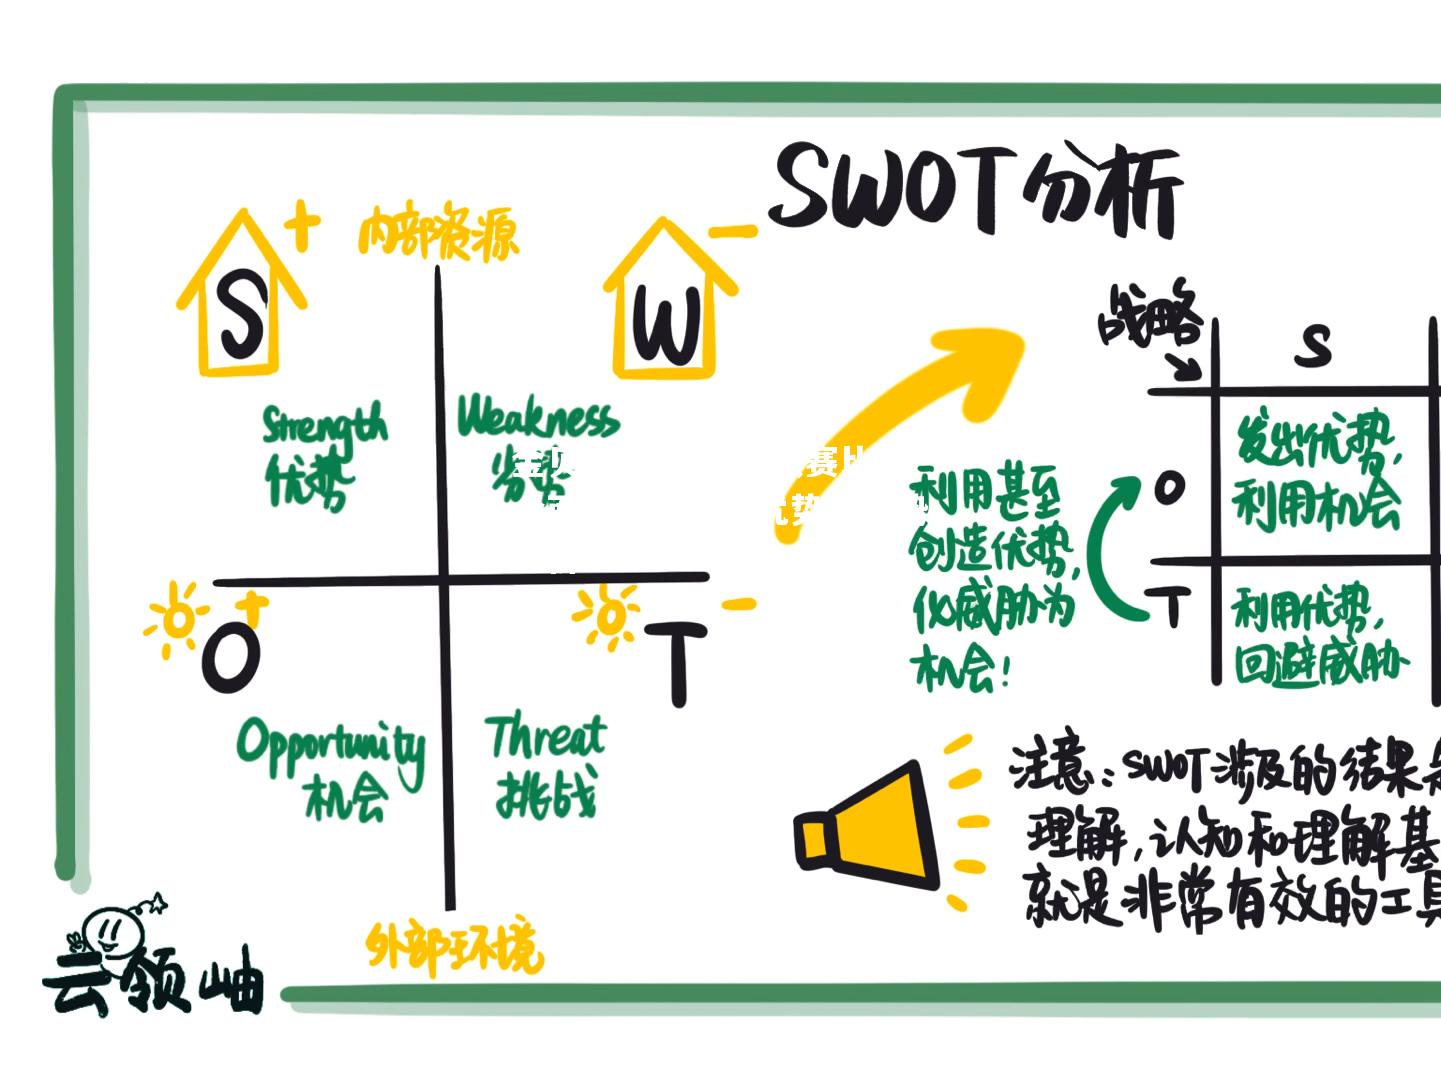 SWOT分析
+ 内部资源 −
S
W
Strength
优势
Weakness
劣势
+ −
O
T
Opportunity
机会
Threat
挑战
外部环境
利用甚至
创造优势,
化威胁为
机会!
战略
S
O
发出优势,
利用机会
T
利用优势,
回避威胁
注意:SWOT涉及的结果
理解,认知和理解基
就是非常有效的工具
云领岫